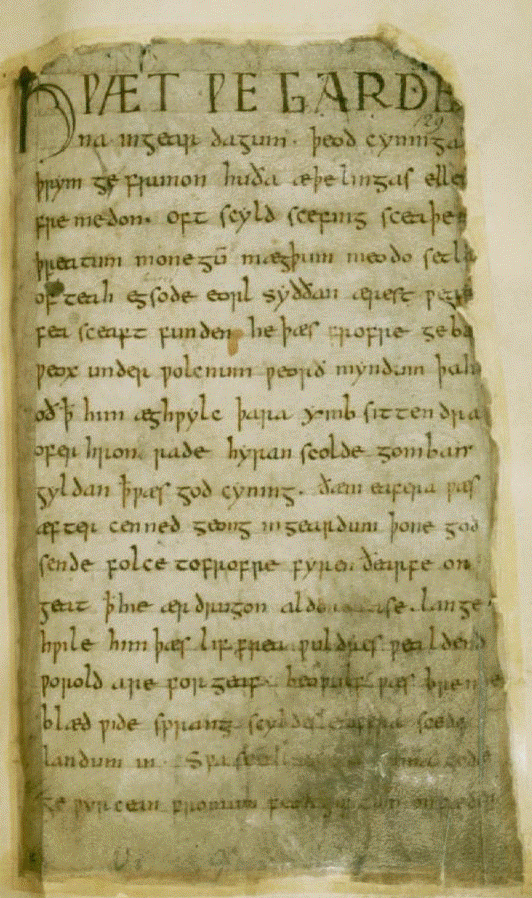 HǷÆT ǷE GARDE
129
na ingear dagum. þeod cyninga
þrym ge frunon huða æþelingas elle
fremedon. oft scyld scefing sceaþe
þreatum monegū mægþum meodo setla
of teah egsode eorl syððan ærest ƿe
fea sceaft funden he þæs frofre geba
ƿeox under ƿolcnum ƿeorð myndum þah
oð ꝥ him æghƿylc þara ymb sittendra
ofer hron rade hyran scolde gomban
gyldan ꝥ ƿæs god cyning. ðæm eafera ƿæs
æfter cenned geong ingeardum þone god
sende folce tofrofre fyren ðearfe on
geat ꝥ hie ær drugon lange
hƿile him þæs lif frea ƿuldres ƿealdend
ƿorold are for geaf. beoƿulf ƿæs breme
blæd ƿide sprang scyldes eafera scede
landum in. Sƿa sceal gode
ge ƿyrcean fromum feoh giftum